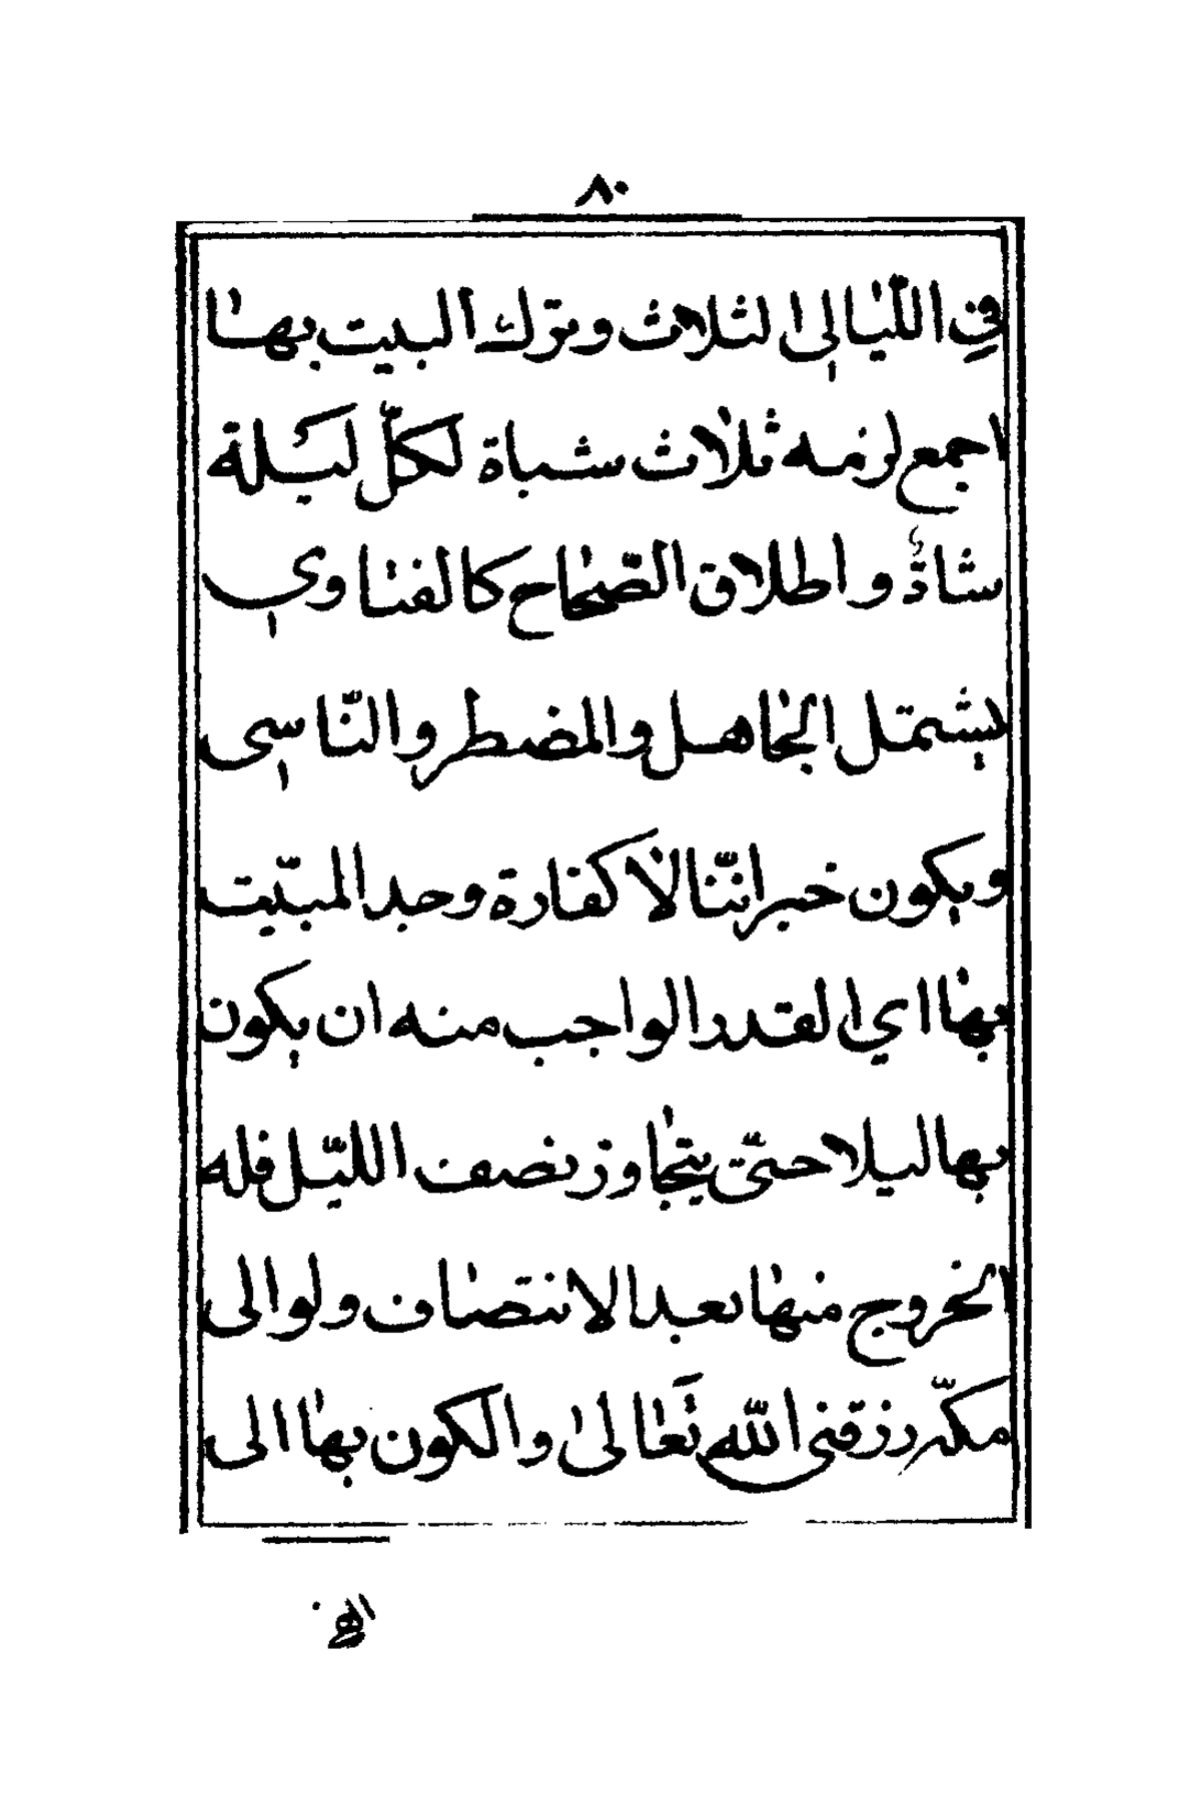 ٨٠
في اللّيالي الثلاث وترك البيت بها
اجمع لزمه ثلاث شباة لكلّ ليلة
شاةٌ واطلاق الصّحاح كالفتاوي
يشتمل الجاهل والمضطر والنّاسي
ويكون خبر اننّا لا كفارة وحد المبيّت
بها اي القدر الواجب منه ان يكون
بها ليلا حتّى يتجاوز نصف اللّيل فله
الخروج منها بعد الانتصاف ولو الى
مكّه رزقني اللّه تَعالى والكون بها الى